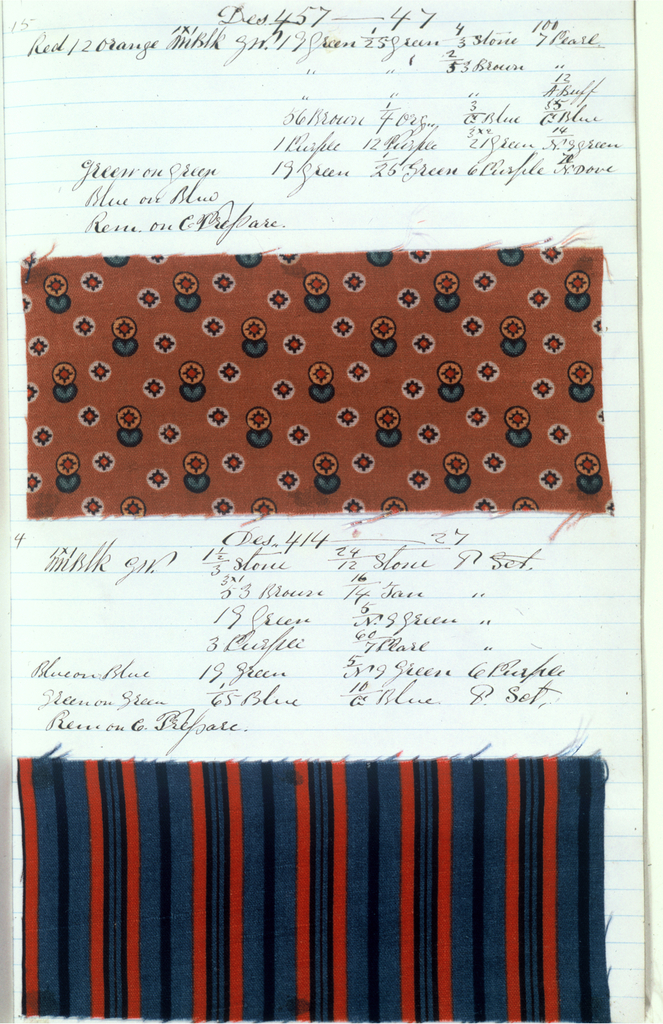 15 Des 457 — 47
Red 12 Orange 1x1 mBlk GW. 19 Green 1/25 Green 4/3 Stone 100/7 Pearl
" " 2/53 Brown "
" " " 12/A Buff
56 Brown 1/4 Org. 3/C Blue 35/C Blue
1 Purple 12 Purple 3x2/21 Green 14/N. 9 Green
Green on Green 19 Green 1/25 Green 6 Purple N. Dove
Blue on Blue
Rem. on C. Prepare.
4 Des. 414 — 27
1x1 mBlk GW. 1 1/2/3 Stone 24/12 Stone P. Set.
3x1/53 Brown 16/14 Tan "
19 Green 5/N. 9 Green "
3 Purple 60/7 Pearl "
Blue on Blue 19 Green 5/N 9 Green 6 Purple
Green on Green 1/65 Blue 10/C Blue. P. Set,
Rem on C. Prepare.